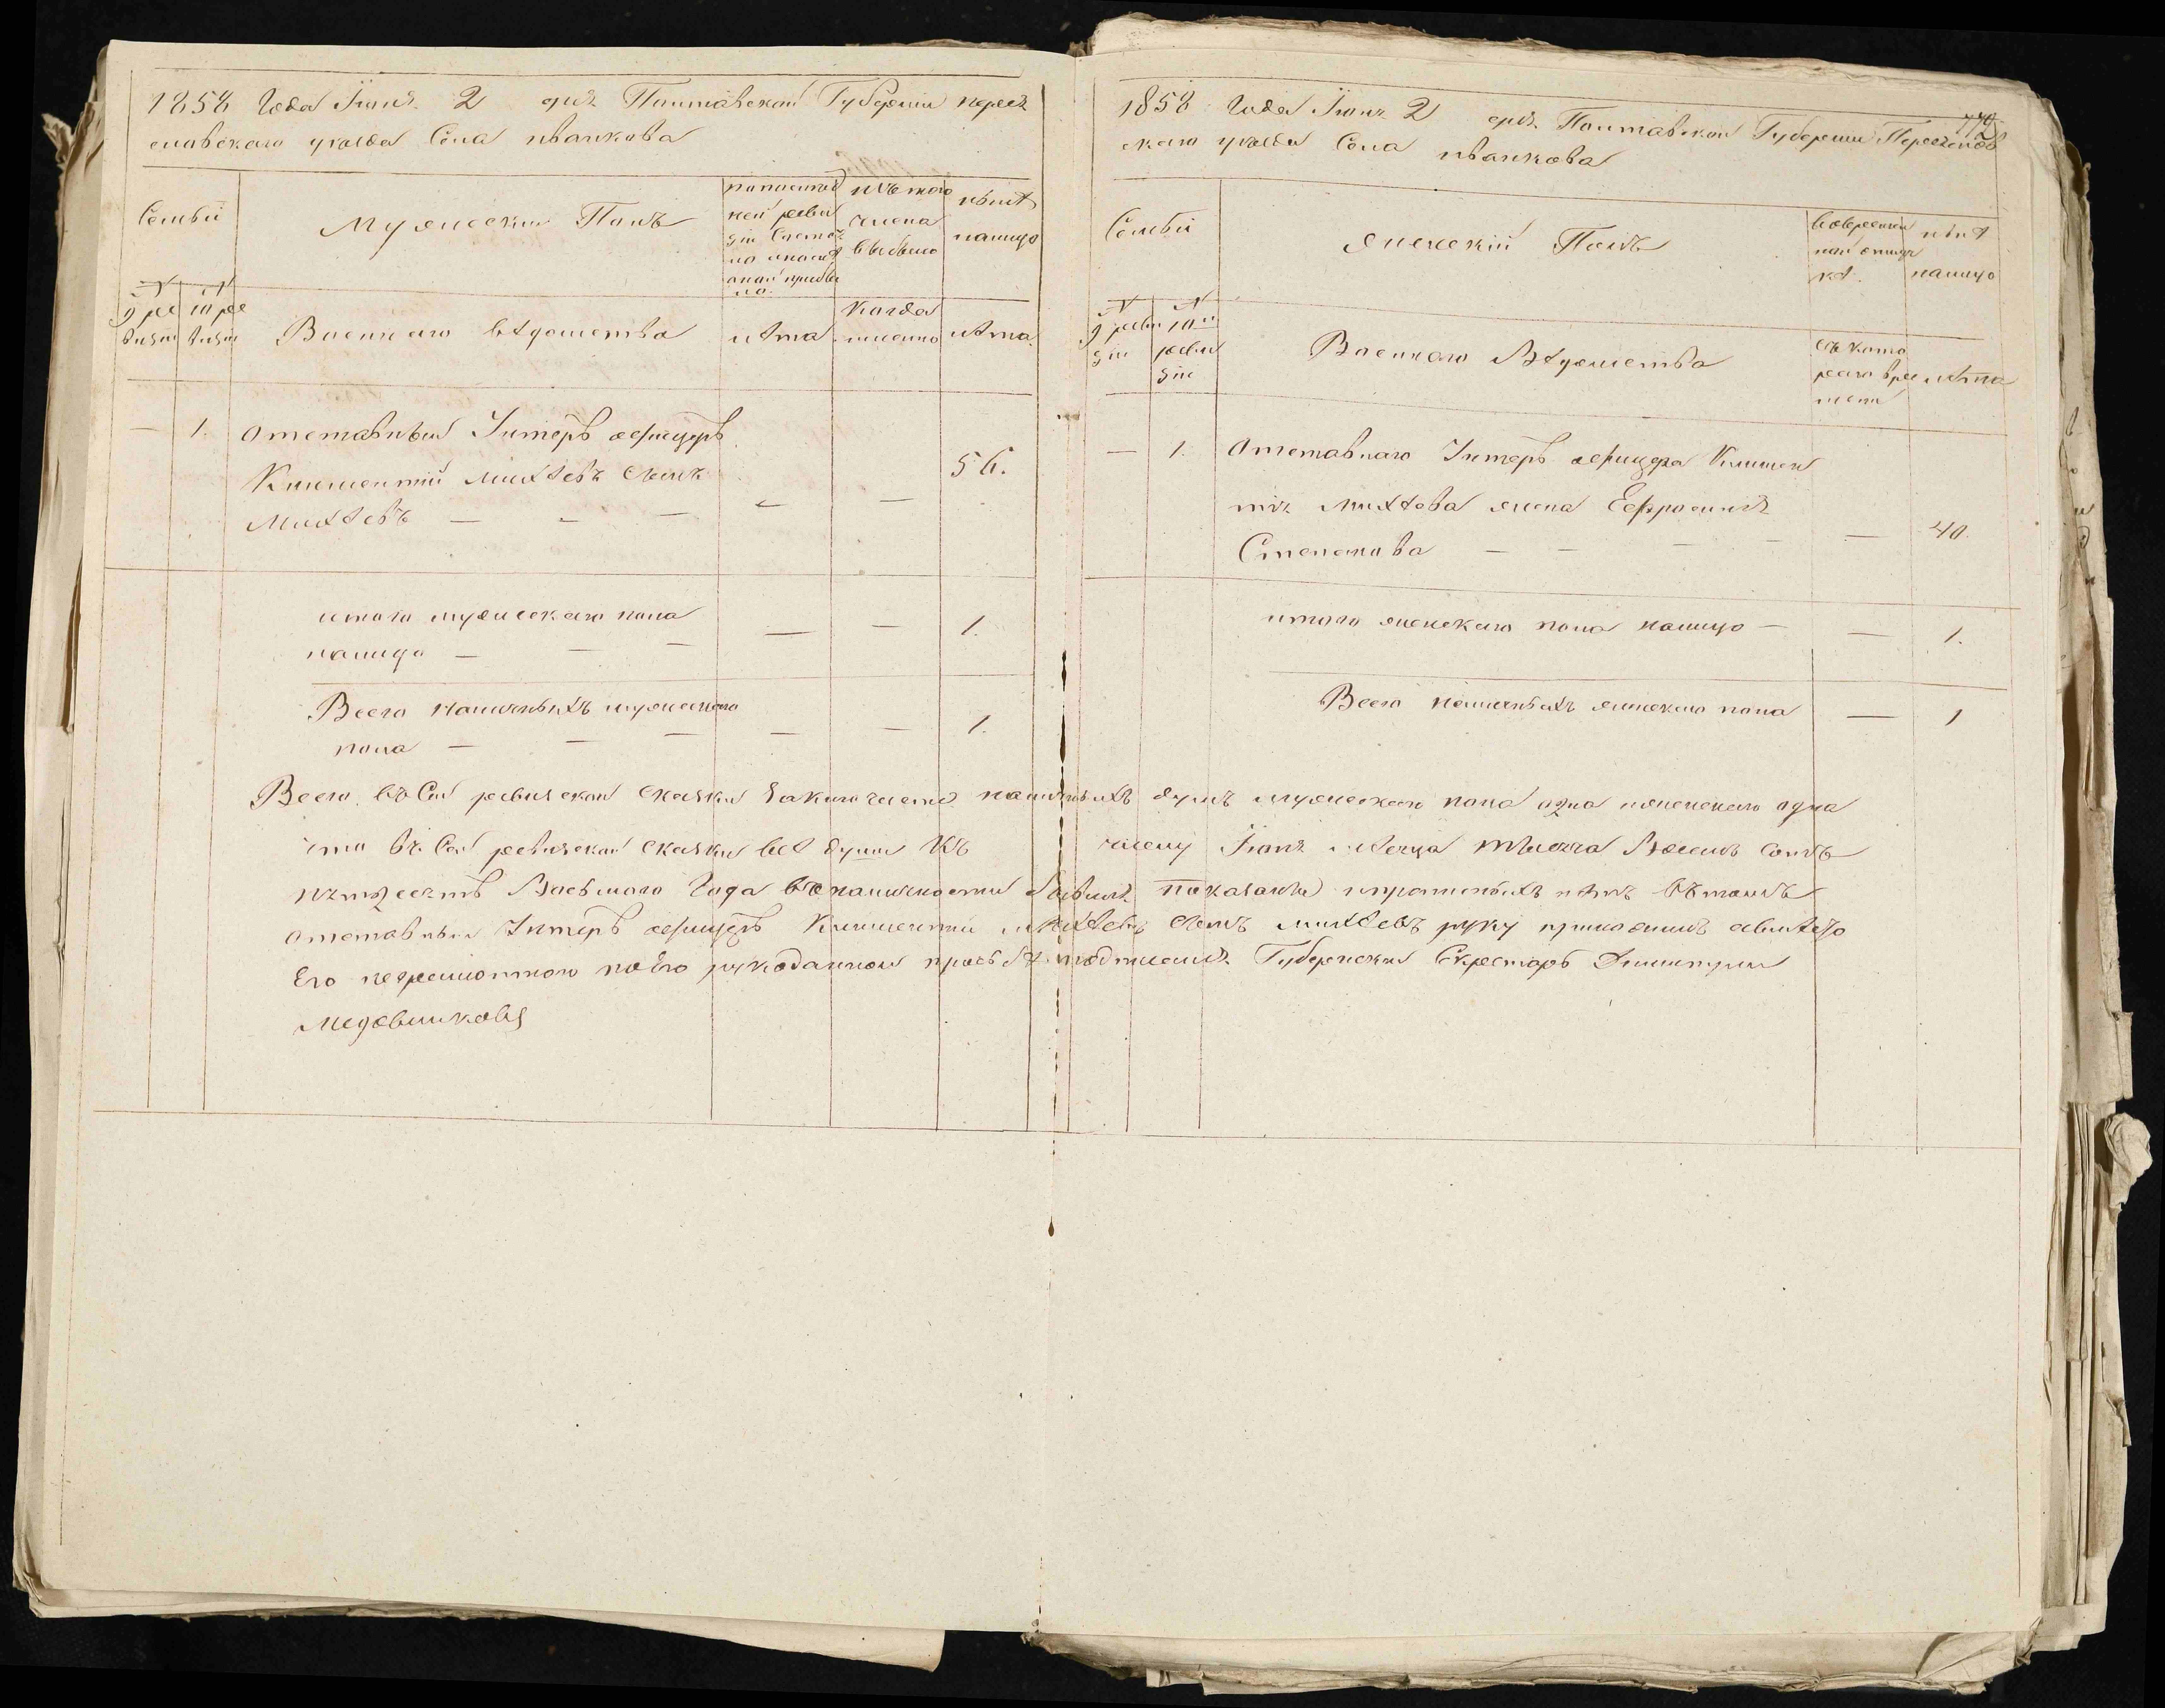 1858 Года Іюня 2 дня Полтавской Губерніи переяс
славскаго уезда Села иванкова
Семьи
Мужескій Полъ
по последней ревизіи состояло и после оной прибыло
изъ того числа выбыло
ныне на лицо
№ 9 ревизіи
№ 10 ревизіи
Военнаго ведомства
лета
когда именно
лета
1. Отставный Унтеръ офицеръ
Климентій Михѣевъ Сынъ
Михѣевъ — — — — — 56.
итого мужескаго пола
на лицо — — — — — 1.
Всего наличныхъ мужескаго
пола — — — — — 1.
1858 Года Іюня 2 дня Полтавской Губерніи Переяслов
скаго уезда Села иванкова
772
Семьи
Женскій Полъ
во временной отлучкѣ
нынѣ на лицо
№ 9 ревизіи
№ 10й ревизіи
Военнаго Вѣдомства
съ котораго времени
лѣта
— 1. Отставнаго Унтеръ офицера Климен
тія Михѣева жена Ефросинія
Степанова — — — — — 40.
итого женскаго пола на лицо — — 1.
Всего наличныхъ женскаго пола — 1
Всего въ Сей ревизской Сказки заключаетца наличныхъ душъ мужескаго пола одна и женскаго одна
что въ Сей ревизской Сказки всѣ души къ числу Іюня месяца тысяча Восемь Сотъ
пятдесятъ Восьмаго Года въ наличности показаны въ томъ
отставный Унтеръ офицеръ Климентій Михѣевъ Сынъ Михѣевъ руку приложилъ а вместо
Его неграмотного по Его рукоданной прозьбѣ подписалъ Губернскій Секретарь Димитрій
Медовниковъ